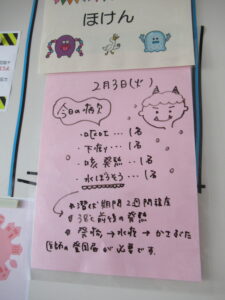 ほけん
2月3日(火)
今日の病欠
・嘔吐…1名
・下痢…1名
・咳 発熱…1名
・水ぼうそう…1名
潜伏期間 2週間程度
38℃前後の発熱
発疹→水疱→かさぶた
医師の登園届が必要です。